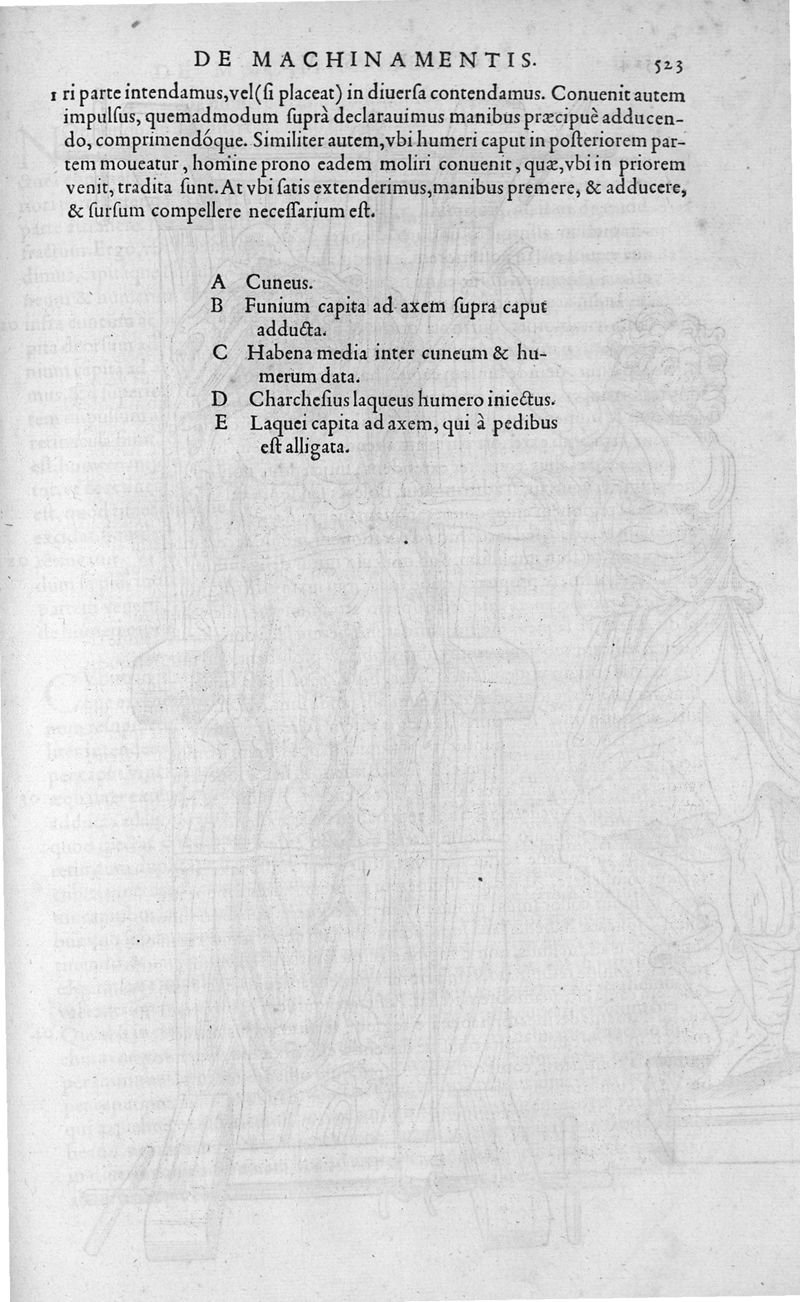 DE MACHINAMENTIS. 523
1 ri parte intendamus,vel(ſi placeat) in diuerſa contendamus. Conuenit autem
impulſus, quemadmodum ſuprà declarauimus manibus præcipuè adducen-
do, comprimendóque. Similiter autem,vbi humeri caput in poſteriorem par-
tem moueatur, homine prono eadem moliri conuenit, quæ,vbi in priorem
venit, tradita ſunt. At vbi ſatis extenderimus,manibus premere, & adducere,
& ſurſum compellere neceſſarium eſt.
A Cuneus.
B Funium capita ad axem ſupra caput
adducta.
C Habena media inter cuneum & hu-
merum data.
D Charcheſius laqueus humero iniectus.
E Laquei capita ad axem, qui à pedibus
eſt alligata.